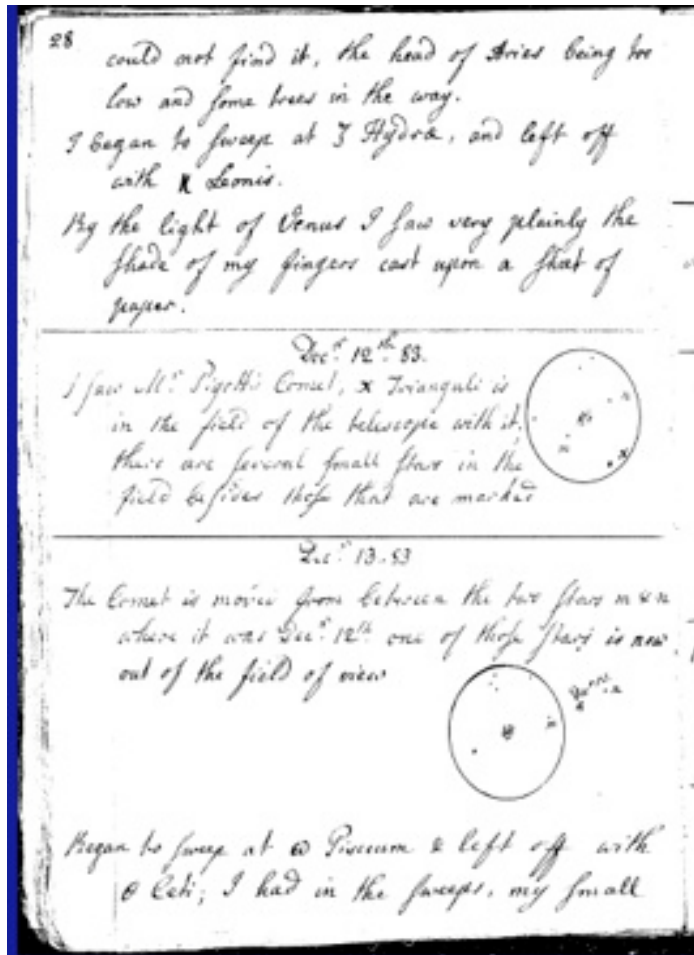 28
could not find it, the head of Aries being too
low and some trees in the way.
I began to sweep at ζ Hydræ, and left off
with ϰ Leonis.
By the light of Venus I saw very plainly the
shade of my fingers cast upon a sheet of
paper.
Decr. 12th. 83.
I saw Mr. Pigott's Comet, x Trianguli is
in the field of the telescope with it,
there are several small stars in the
field besides those that are marked
n
m
x
Decr. 13. 83
The Comet is moved from between the two stars m & n
where it was Decr. 12th. one of those stars is now
out of the field of view
m
n
Began to sweep at ω Piscium & left off with
θ Ceti; I had in the sweeps, my small